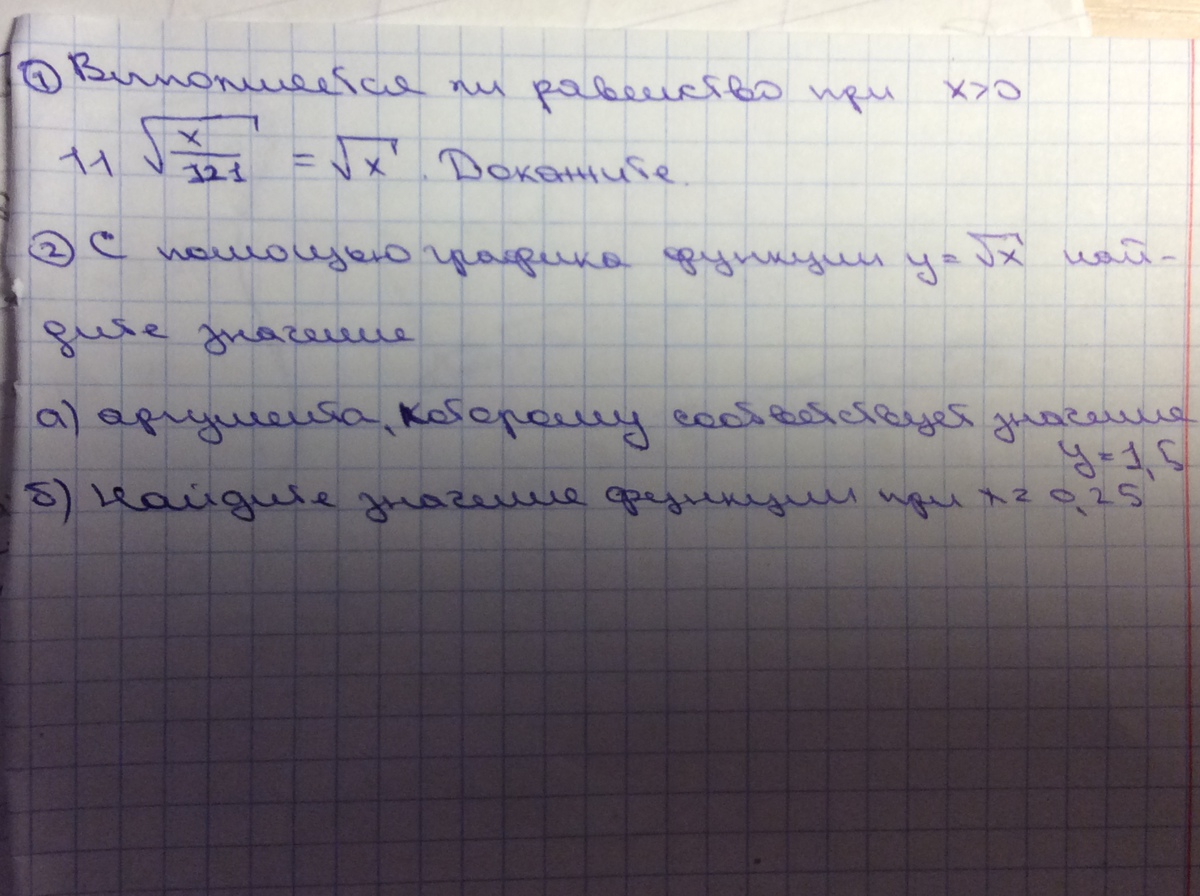 ① Выполняется ли равенство при x>0
11 √(x/121) = √x. Докажите.
② С помощью графика функции y=√x най-
дите значение
а) аргумента, которому соответствует значение
y=1,5
б) Найдите значение функции при x=0,25